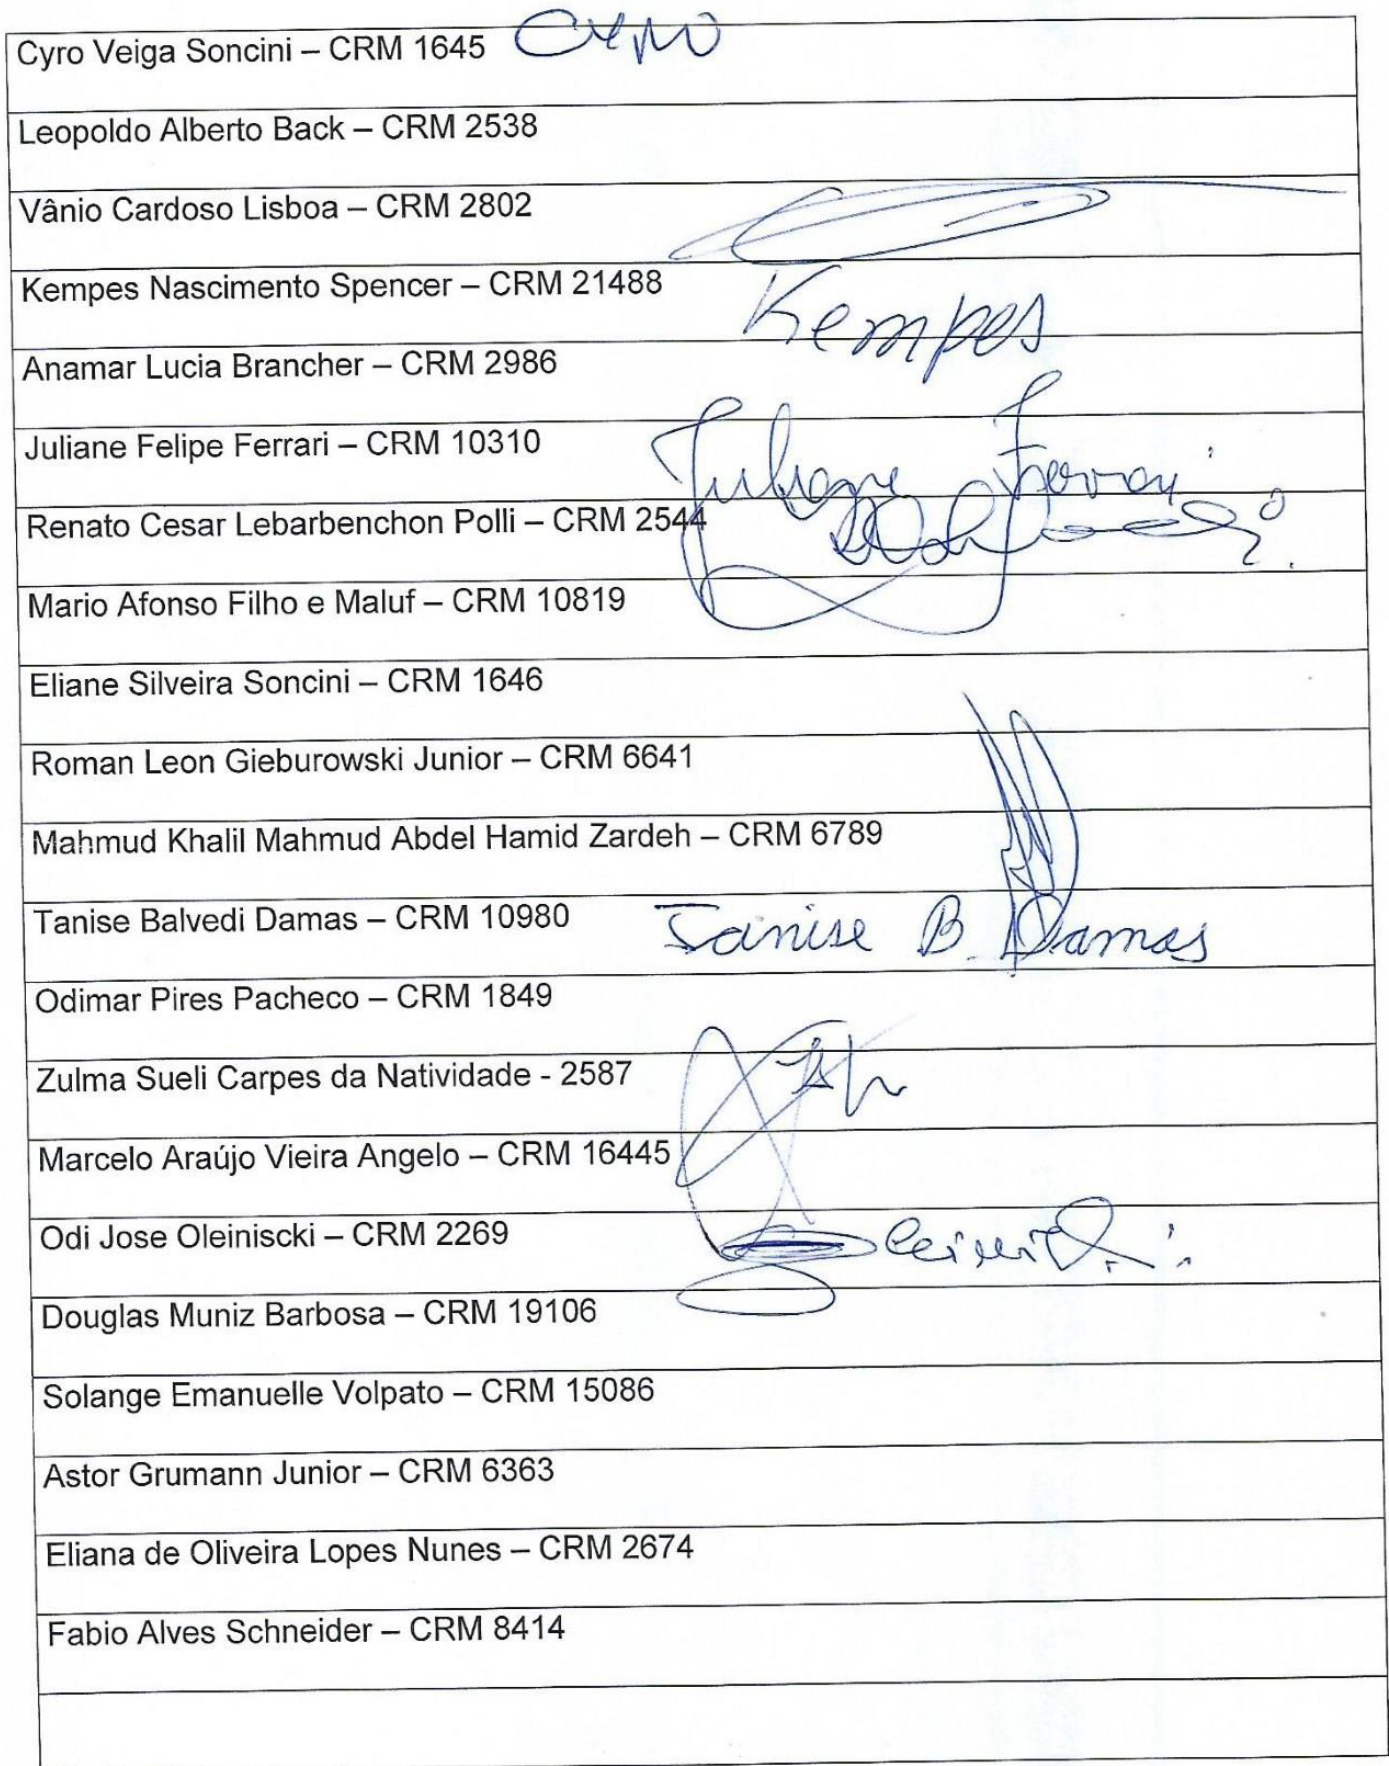 Cyro Veiga Soncini – CRM 1645 Cyro
Leopoldo Alberto Back – CRM 2538
Vânio Cardoso Lisboa – CRM 2802
Kempes Nascimento Spencer – CRM 21488 Kempes
Anamar Lucia Brancher – CRM 2986
Juliane Felipe Ferrari – CRM 10310 Juliane Ferrari
Renato Cesar Lebarbenchon Polli – CRM 2544
Mario Afonso Filho e Maluf – CRM 10819
Eliane Silveira Soncini – CRM 1646
Roman Leon Gieburowski Junior – CRM 6641
Mahmud Khalil Mahmud Abdel Hamid Zardeh – CRM 6789
Tanise Balvedi Damas – CRM 10980 Tanise B. Damas
Odimar Pires Pacheco – CRM 1849
Zulma Sueli Carpes da Natividade - 2587
Marcelo Araújo Vieira Angelo – CRM 16445
Odi Jose Oleiniscki – CRM 2269
Douglas Muniz Barbosa – CRM 19106
Solange Emanuelle Volpato – CRM 15086
Astor Grumann Junior – CRM 6363
Eliana de Oliveira Lopes Nunes – CRM 2674
Fabio Alves Schneider – CRM 8414